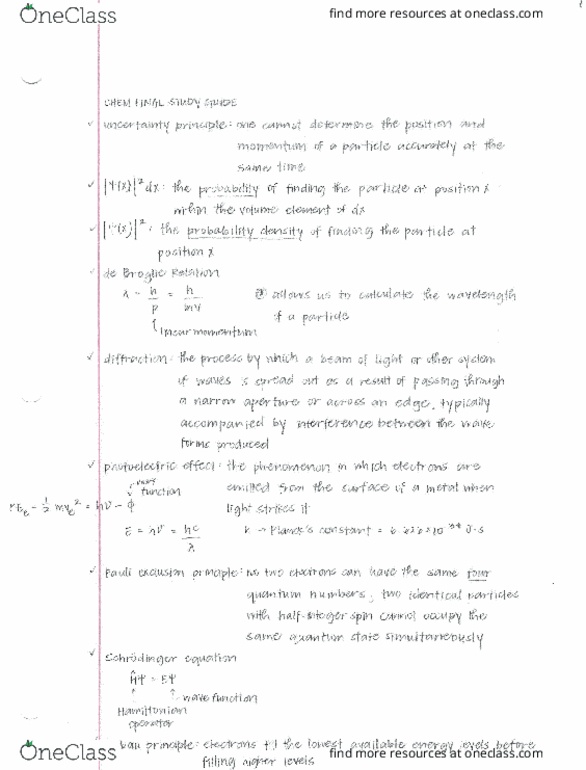 OneClass
find more resources at oneclass.com
CHEM FINAL STUDY GUIDE
✓ uncertainty principle: one cannot determine the position and
momentum of a particle accurately at the
same time
✓ |Ψ(x)|² dx: the probability of finding the particle at position x
within the volume element of dx
✓ |Ψ(x)|²: the probability density of finding the particle at
position x
✓ de Broglie Relation
λ = h/p = h/mv allows us to calculate the wavelength
of a particle
linear momentum
✓ diffraction: the process by which a beam of light or other system
of waves is spread out as a result of passing through
a narrow aperture or across an edge, typically
accompanied by interference between the wave
forms produced
✓ photoelectric effect: the phenomenon in which electrons are
work function
emitted from the surface of a metal when
KEe = ½ mve² = hν - Φ
light strikes it
E = hν = hc/λ h → Planck's constant = 6.626x10⁻³⁴ J·s
✓ Pauli exclusion principle: no two electrons can have the same four
quantum numbers; two identical particles
with half-integer spin cannot occupy the
same quantum state simultaneously
✓ Schrödinger equation
ĤΨ = EΨ
↑ ↑ wave function
Hamiltonian
operator
bau principle: electrons fill the lowest available energy levels before
filling higher levels
OneClass
find more resources at oneclass.com